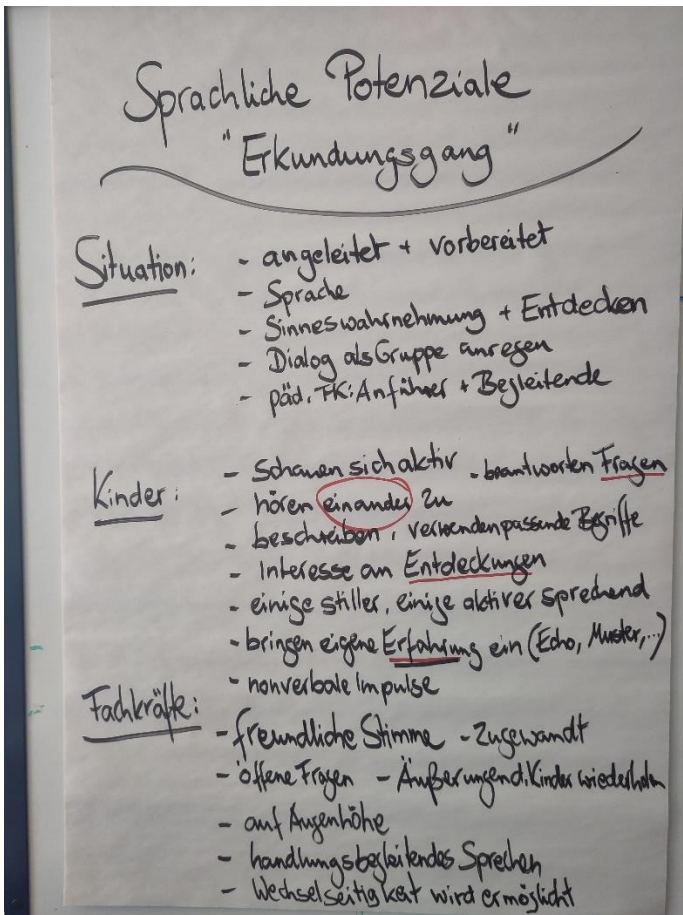 Sprachliche Potenziale
"Erkundungsgang"
Situation: - angeleitet + vorbereitet
- Sprache
- Sinneswahrnehmung + Entdecken
- Dialog als Gruppe anregen
- päd. FK: Anführer + Begleitende
Kinder: - schauen sich aktiv - beantworten Fragen
- hören einander zu
- beschreiben, verwenden passende Begriffe
- Interesse an Entdeckungen
- einige stiller, einige aktiver sprechend
- bringen eigene Erfahrung ein (Echo, Muster,...)
- nonverbale Impulse
Fachkräfte: - freundliche Stimme - zugewandt
- offene Fragen - Äußerungen d. Kinder wiederholen
- auf Augenhöhe
- handlungsbegleitendes Sprechen
- Wechselseitigkeit wird ermöglicht